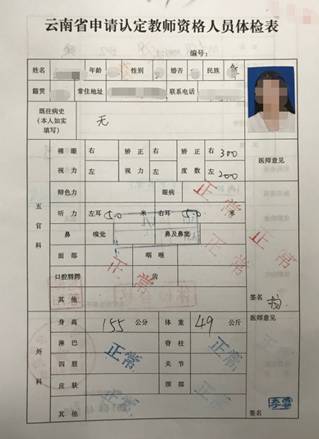 云南省申请认定教师资格人员体检表
编号:
姓名 年龄 性别 婚否 民族
籍贯 常住地址 联系电话
既往病史
(本人如实
填写)
无
五官科
裸眼 右 矫正 右 矫正 右 300
视力 左 视力 左 度数 左 200
医师意见
辩色力 眼病
正常
听力 左耳 5.0 米 右耳 5.0 米
鼻 嗅觉 鼻及鼻窦
正常
面部 咽喉
正常
正常
口腔唇腭 齿
其他
签名
外科
身高 155 公分 体重 49 公斤
医师意见
淋巴 脊柱
正常
正常
四肢 关节
正常
皮肤 颈部
其他
签名